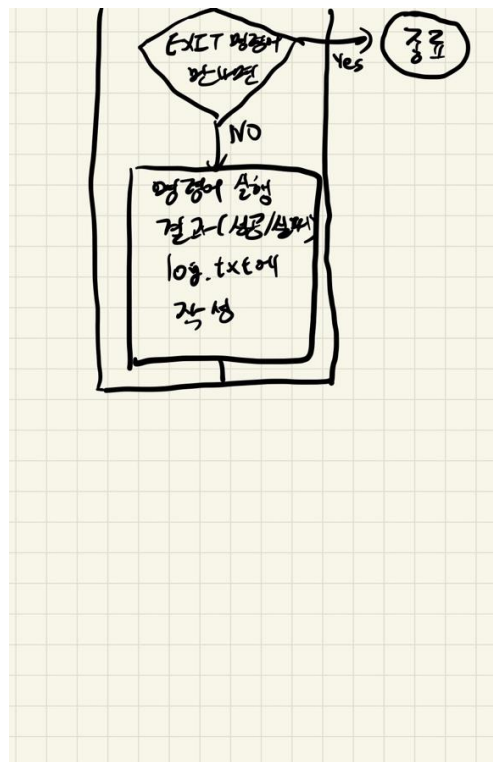 EXIT 명령어
만나면
Yes
종료
NO
명령어 실행
결과(성공/실패)
log.txt에
작성